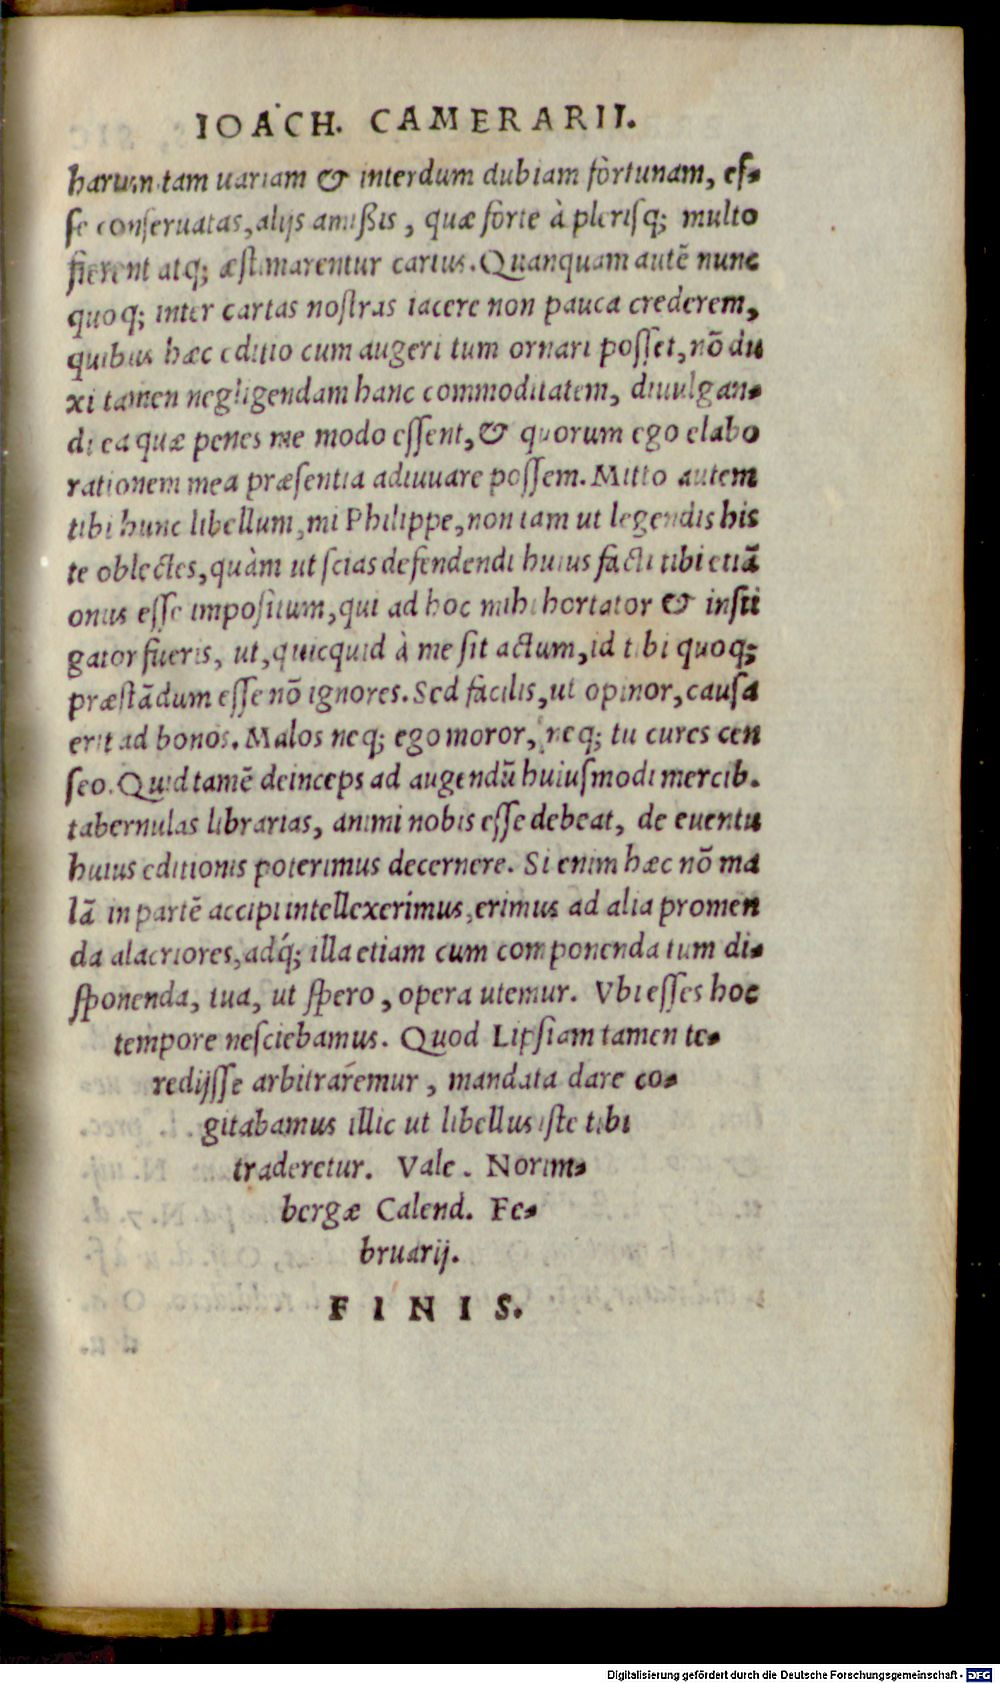 IOACH. CAMERARII.
harum tam uariam & interdum dubiam fortunam, es-
se conseruatas, alijs amißis, quæ forte à plerisq; multo
fierent atq; æstimarentur carius. Quanquam autē nunc
quoq; inter cartas nostras iacere non pauca crederem,
quibus hæc editio cum augeri tum ornari posset, nō du
xi tamen negligendam hanc commoditatem, diuulgan-
di ea quæ penes me modo essent, & quorum ego elabo
rationem mea præsentia adiuuare possem. Mitto autem
tibi hunc libellum, mi Philippe, non tam ut legendis his
te oblectes, quàm ut scias defendendi huius facti tibi etiā
onus esse impositum, qui ad hoc mihi hortator & insti
gator fueris, ut, quicquid à me sit actum, id tibi quoq;
præstādum esse nō ignores. Sed facilis, ut opinor, causa
erit ad bonos. Malos neq; ego moror, neq; tu cures cen
seo. Quid tamē deinceps ad augendū huiusmodi mercib.
tabernulas librarias, animi nobis esse debeat, de euentu
huius editionis poterimus decernere. Si enim hæc nō ma
lā in partē accipi intellexerimus, erimus ad alia promen
da alacriores, adq́; illa etiam cum componenda tum di-
sponenda, tua, ut spero, opera utemur. Vbi esses hoc
tempore nesciebamus. Quod Lipsiam tamen te-
redijsse arbitraremur, mandata dare co-
gitabamus illic ut libellus iste tibi
traderetur. Vale. Norim-
bergæ Calend. Fe-
bruarij.
FINIS.
Digitalisierung gefördert durch die Deutsche Forschungsgemeinschaft - DFG